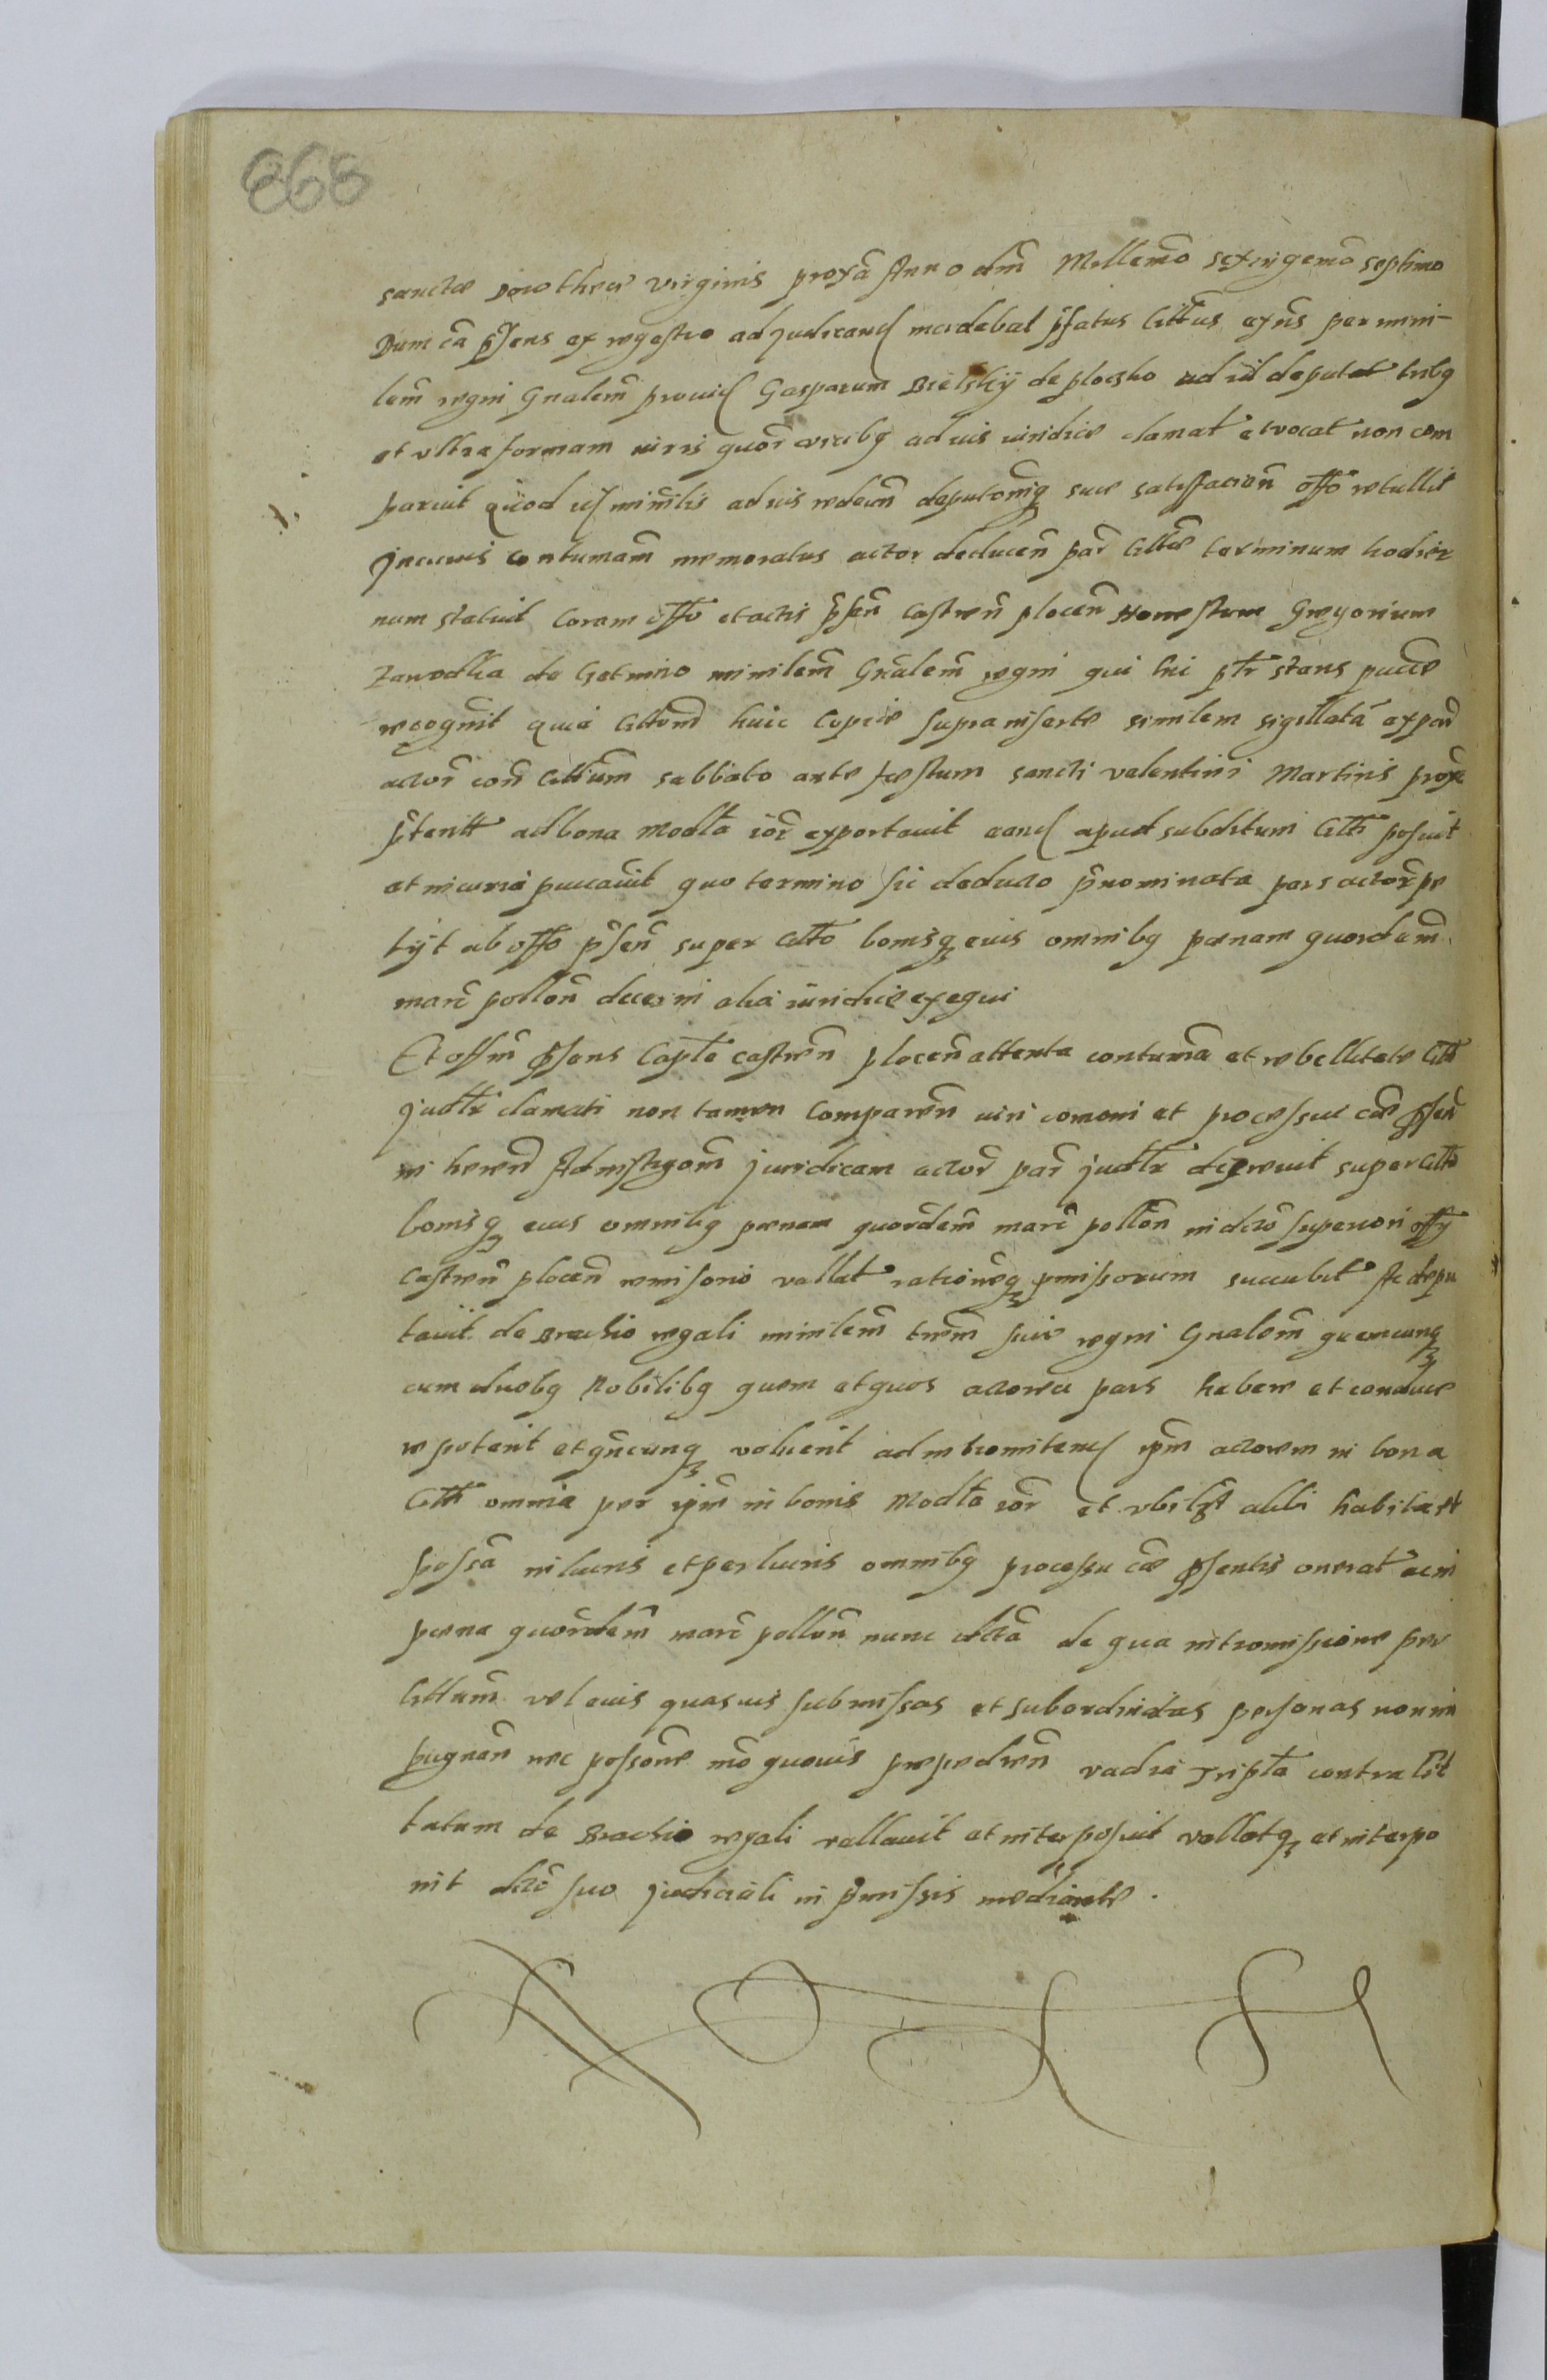 868
sanctae Dorotheae virginis proxā Anno dm̄ Millemō sexcigemō septimo
Dum cā pn̄sens ex regestro ad judicand incidebat p̄fatus Citt̄us exn̄s per mini-
lem̄ regni Gn̄alem̄ provid Gasparum Bielskÿ de plocsko ad id deputat tribq
et ultra formam iuris quor̄ vicibq ad ius iuridice clamat et vocat non com
paruit quod id minīlis ad ius redeun̄ deputonīq suae satisfacien̄ offō retullit
In cuius contumam̄ memoratus actor ducen̄ par̄ Citt̄ae terminum hodier
num statuit Coram offō et actis p̄sen̄ Castren̄ plocen̄ Honestum Gregorium
Zawodka de minilem̄ Gn̄alem̄ regni qui hic pt̄r stans
recognit quia Citt̄om̄ huic Copiae supra insertae similem sigillatā ex par̄
actor̄ con̄ Citt̄um̄ sabbato ante festum sancti valentini Martiris prox̄e
p̄terit̄ ad bona Modl̄a ior̄ exportavit eand apud subditum Citt̄i posuit
et in curia quo termino sic deducto p̄nominata pars actor̄ pe
tÿt ab offō p̄sen̄ super Citt̄o bonisq eius omnibq paenam quordem̄
marc̄ pollōn decerni alia iuridice exequi
Et offm̄ p̄sens Capl̄e castren̄ plocen̄ attenta contumā et rebellitate Citt̄i
judlr̄ clamati non tamen Comparen̄ iuri comoni et processui cāe p̄sen̄
in heren̄ Admstrgom̄ juridicam actor̄ par̄ judlr̄ decrevit super Citt̄o
bonisq eius omnibq paenam quordem̄ marc̄ pollōn in dctō superiori offÿ
Castren̄ plocen̄ remissorio vallat̄ rationeq p̄missorum succubit̄ Ac depu
tavit de Brachio regali minilem̄ trem̄ suae regni Gnalem̄ quemcunq
cum duobq Nobilibq quem et quos actorea pars habere et conduce
re poterit et qn̄cunq voluerit ad intromitend ipm̄ actorem in bona
Citt̄i omnia per ipm̄ in bonis Modl̄a ior̄ et ubilz̄t alibi habita et
possā in lucris et perlucris omnibq processu cāe p̄sentis onerat ac in
paena quordem̄ marc̄ pollōn nunc dctā de qua intromissione per
Citt̄um̄ vel eius quasvis submissas et subordinatas personas non im
pugnan̄ nec possone mō quovis praepedien̄ vadia tripl̄a contra Cit
tatum de Brachio regali vallavit et interposuit vallatq et interpo
nit dctō suo judiciali in p̄missis mediante.